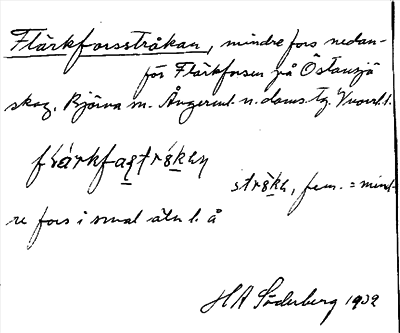 Flärkforsstråkan, mindre fors nedan-
för Flärkforsen på Östansjö
skog. Björna sn. Ångerml. n. doms. tg. Vnorrl. l.
stråka, fem. = mind-
re fors i smal älv l. å
HA Söderberg 1902